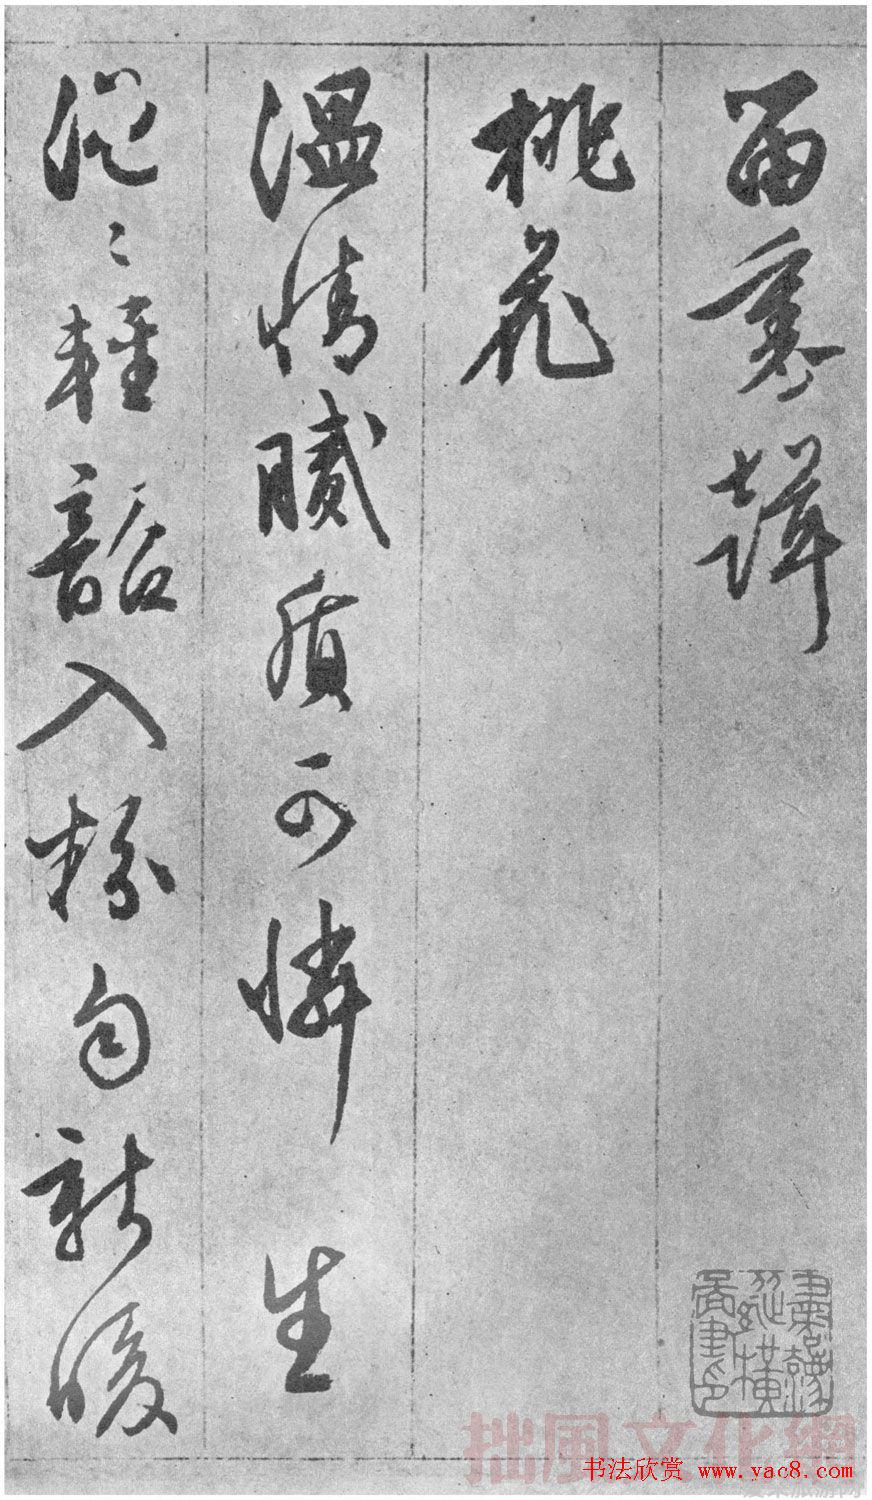 桃花
温情膩質可憐生
浥〻輕韶入粉匀新暖
拙風文化網
书法欣赏 www.yac8.com